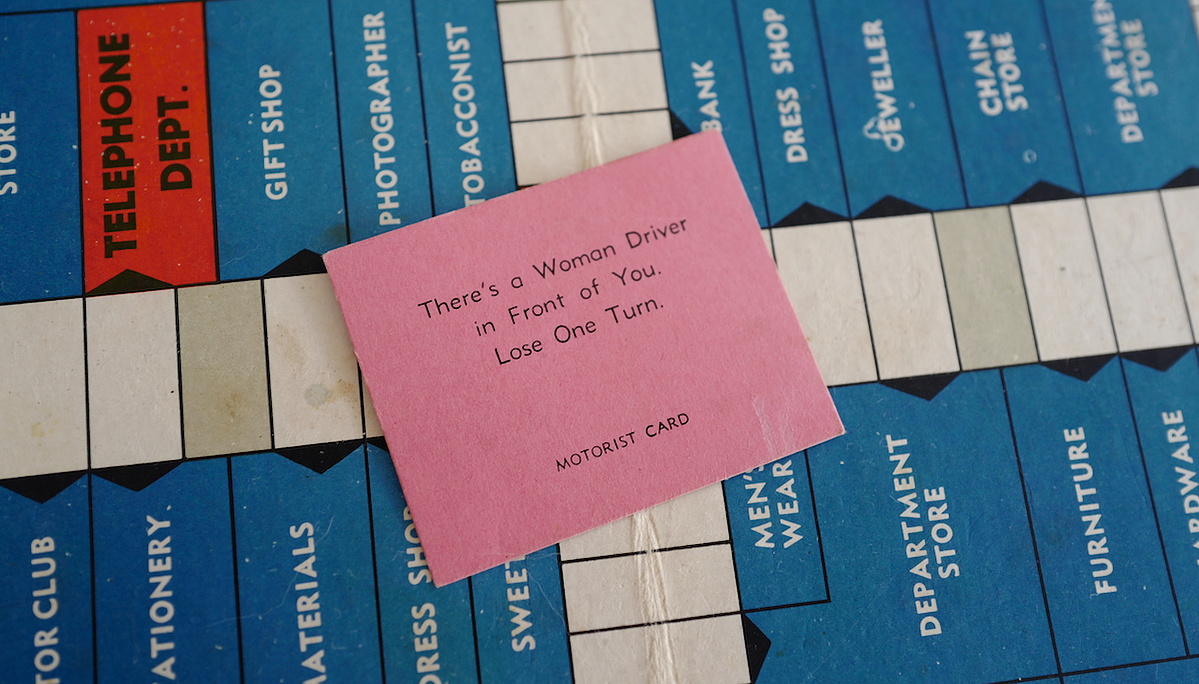 STORE
TELEPHONE
DEPT.
GIFT SHOP
PHOTOGRAPHER
TOBACCONIST
BANK
DRESS SHOP
JEWELLER
CHAIN
STORE
DEPARTMEN
STORE
There's a Woman Driver
in Front of You.
Lose One Turn.
MOTORIST CARD
TOR CLUB
ATIONERY.
MATERIALS
DRESS SHOP
SWEET
MEN'S
WEAR
DEPARTMENT
STORE
FURNITURE
ARDWARE